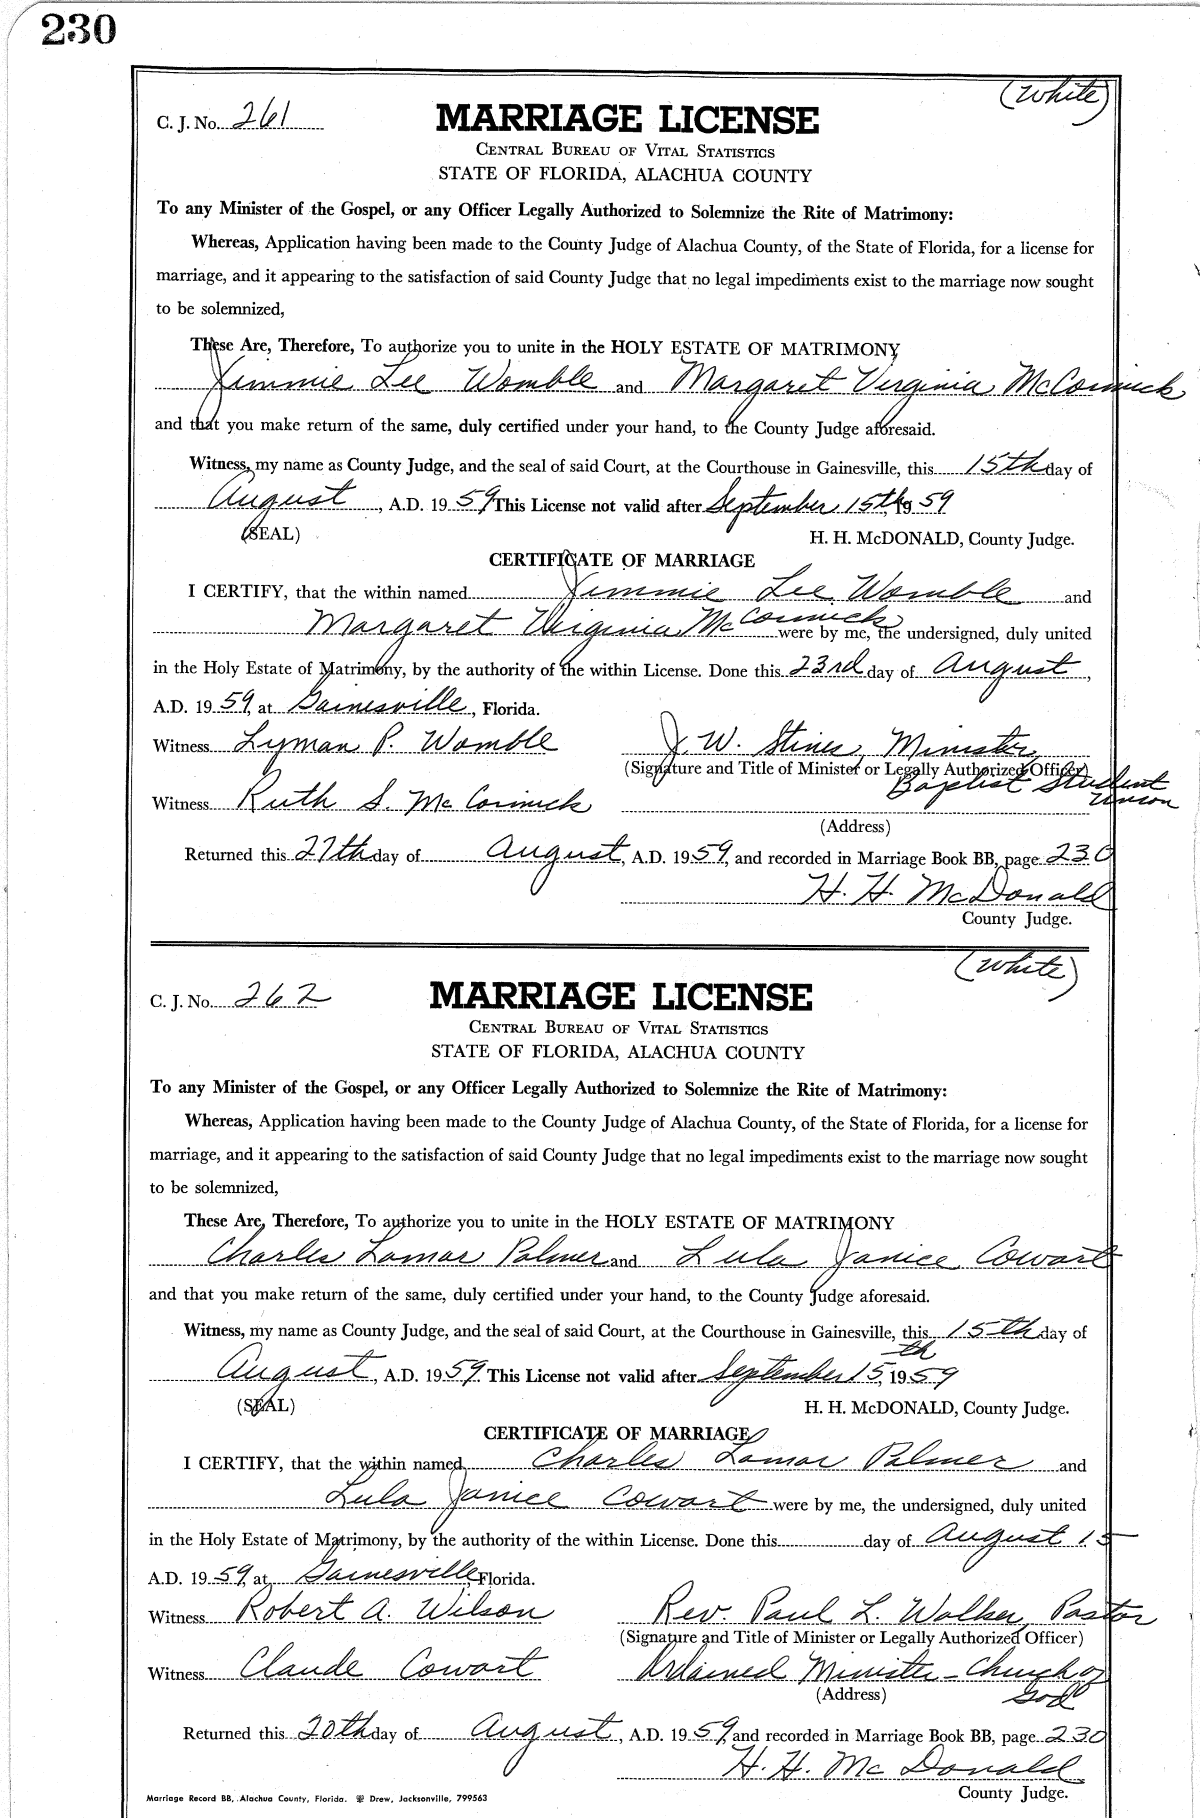 230
(White)
C. J. No. 261
MARRIAGE LICENSE
CENTRAL BUREAU OF VITAL STATISTICS
STATE OF FLORIDA, ALACHUA COUNTY
To any Minister of the Gospel, or any Officer Legally Authorized to Solemnize the Rite of Matrimony:
Whereas, Application having been made to the County Judge of Alachua County, of the State of Florida, for a license for
marriage, and it appearing to the satisfaction of said County Judge that no legal impediments exist to the marriage now sought
to be solemnized,
These Are, Therefore, To authorize you to unite in the HOLY ESTATE OF MATRIMONY
Jimmie Lee Womble and Margaret Virginia McCormick
and that you make return of the same, duly certified under your hand, to the County Judge aforesaid.
Witness, my name as County Judge, and the seal of said Court, at the Courthouse in Gainesville, this 15th day of
August, A.D. 1959 This License not valid after September 15th, 1959
(SEAL) H. H. McDONALD, County Judge.
CERTIFICATE OF MARRIAGE
I CERTIFY, that the within named Jimmie Lee Womble and
Margaret Virginia McCormick were by me, the undersigned, duly united
in the Holy Estate of Matrimony, by the authority of the within License. Done this 23rd day of August,
A.D. 1959, at Gainesville, Florida.
Witness Lyman P. Womble J. W. Stines, Minister
(Signature and Title of Minister or Legally Authorized Officer)
Baptist Student Union
Witness Ruth S. McCormick
(Address)
Returned this 27th day of August, A.D. 1959, and recorded in Marriage Book BB, page 230
H. H. McDonald
County Judge.
(White)
C. J. No. 262
MARRIAGE LICENSE
CENTRAL BUREAU OF VITAL STATISTICS
STATE OF FLORIDA, ALACHUA COUNTY
To any Minister of the Gospel, or any Officer Legally Authorized to Solemnize the Rite of Matrimony:
Whereas, Application having been made to the County Judge of Alachua County, of the State of Florida, for a license for
marriage, and it appearing to the satisfaction of said County Judge that no legal impediments exist to the marriage now sought
to be solemnized,
These Are, Therefore, To authorize you to unite in the HOLY ESTATE OF MATRIMONY
Charles Lamar Palmer and Lula Janice Cowart
and that you make return of the same, duly certified under your hand, to the County Judge aforesaid.
Witness, my name as County Judge, and the seal of said Court, at the Courthouse in Gainesville, this 15th day of
August, A.D. 1959. This License not valid after September 15th, 1959
(SEAL) H. H. McDONALD, County Judge.
CERTIFICATE OF MARRIAGE
I CERTIFY, that the within named Charles Lamar Palmer and
Lula Janice Cowart were by me, the undersigned, duly united
in the Holy Estate of Matrimony, by the authority of the within License. Done this day of August 15
A.D. 1959, at Gainesville, Florida.
Witness Robert A. Wilson Rev. Paul L. Walker, Pastor
(Signature and Title of Minister or Legally Authorized Officer)
Witness Claude Cowart Ordained Minister - Church of God
(Address)
Returned this 20th day of August, A.D. 1959, and recorded in Marriage Book BB, page 230
H. H. McDonald
County Judge.
Marriage Record BB, Alachua County, Florida. Drew, Jacksonville, 799563